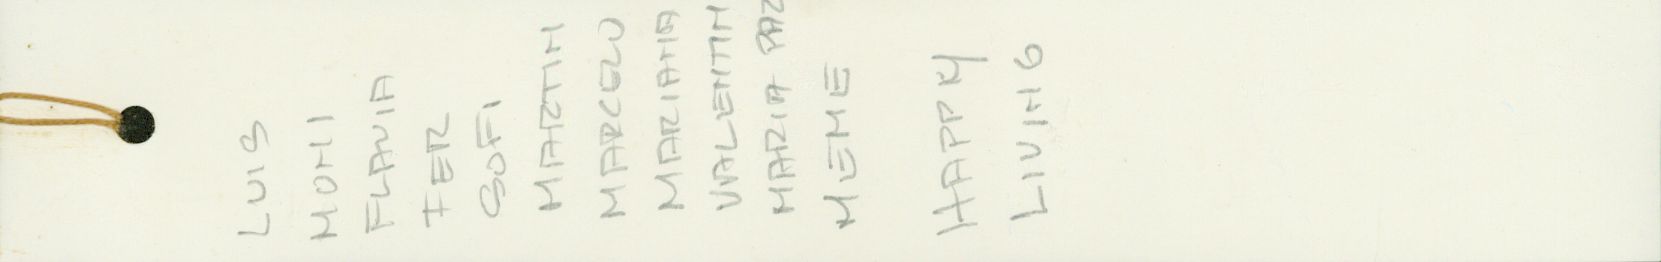 LUIS
MONI
FLAVIA
FER
SOFI
MARTIN
MARCELO
MARIANA
VALENTIN
MARIA PAZ
MEME
HAPPY
LIVING